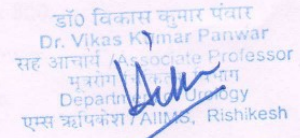 डॉ0 विकास कुमार पंवार
Dr. Vikas Kumar Panwar
सह आचार्य /Associate Professor
मूत्ररोग
Department Urology
एम्स ऋषिकेश / AIIMS, Rishikesh